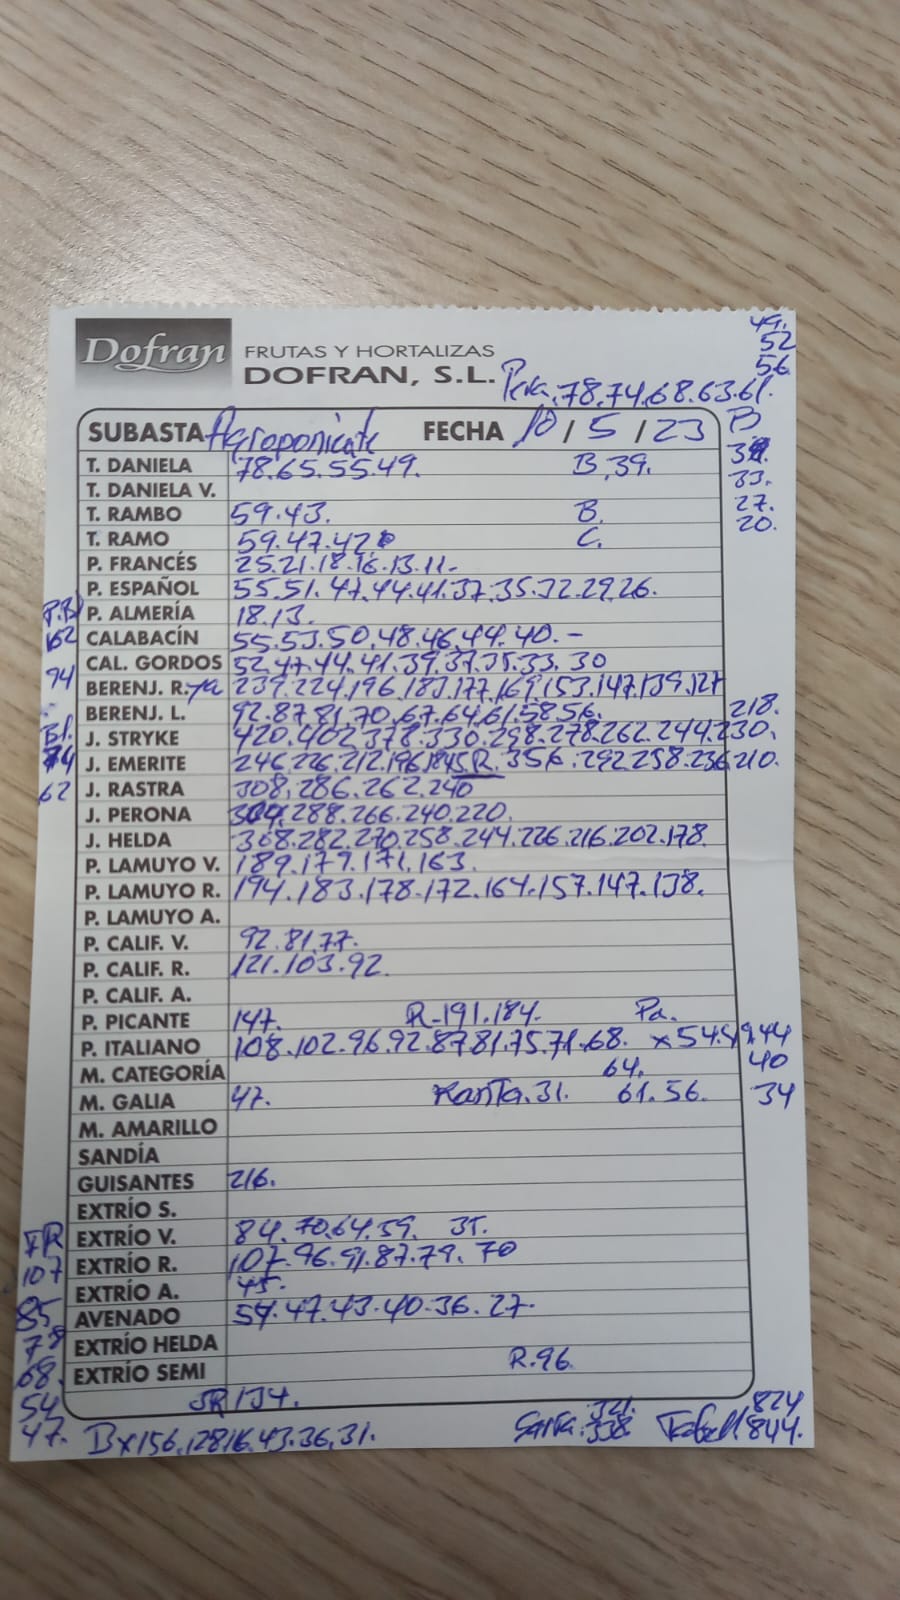 49.
52
56
Dofran FRUTAS Y HORTALIZAS
DOFRAN, S.L. Pera.78.74.68.63.61.
SUBASTA Agroponiente FECHA 10/5/23 B
T. DANIELA 78.65.55.49. B.39.
33.
T. DANIELA V.
27.
T. RAMBO 59.43. B.
20.
T. RAMO 59.47.42 C.
P. FRANCÉS 25.21.18.16.13.11.-
P. ESPAÑOL 55.51.47.44.41.37.35.32.29.26.
P.B P. ALMERÍA 18.13.
162 CALABACÍN 55.53.50.48.46.44.40.-
CAL. GORDOS 52.47.44.41.39.37.35.33.30
94 BERENJ. R. ya 239.224.196.183.177.169.153.147.139.127
BERENJ. L. 92.87.81.70.67.64.61.58.56. 218.
J. STRYKE 420.402.378.330.298.278.262.244.230.
74 J. EMERITE 246.226.212.196.184 S.R. 356.292.258.236.210.
62 J. RASTRA 308.286.262.240
J. PERONA 304.288.266.240.220.
J. HELDA 308.282.270.258.244.226.216.202.178.
P. LAMUYO V. 189.179.171.163.
P. LAMUYO R. 194.183.178.172.164.157.147.138.
P. LAMUYO A.
P. CALIF. V. 92.81.77.
P. CALIF. R. 121.103.92.
P. CALIF. A.
P. PICANTE 147. R-191.184. Pa.
P. ITALIANO 108.102.96.92.87.81.75.71.68. x54.49.44
M. CATEGORÍA 64. 40
M. GALIA 47. 31. 61.56. 34
M. AMARILLO
SANDÍA
GUISANTES 216.
EXTRÍO S.
FR EXTRÍO V. 84.70.64.59. 35.
107 EXTRÍO R. 107.96.91.87.79.70
EXTRÍO A. 45.
85 AVENADO 54.47.43.40.36.27.
78 EXTRÍO HELDA
68. EXTRÍO SEMI R.96
54 SR 134.
321. 824
47. Bx156.128 43.36.31. 338 844.